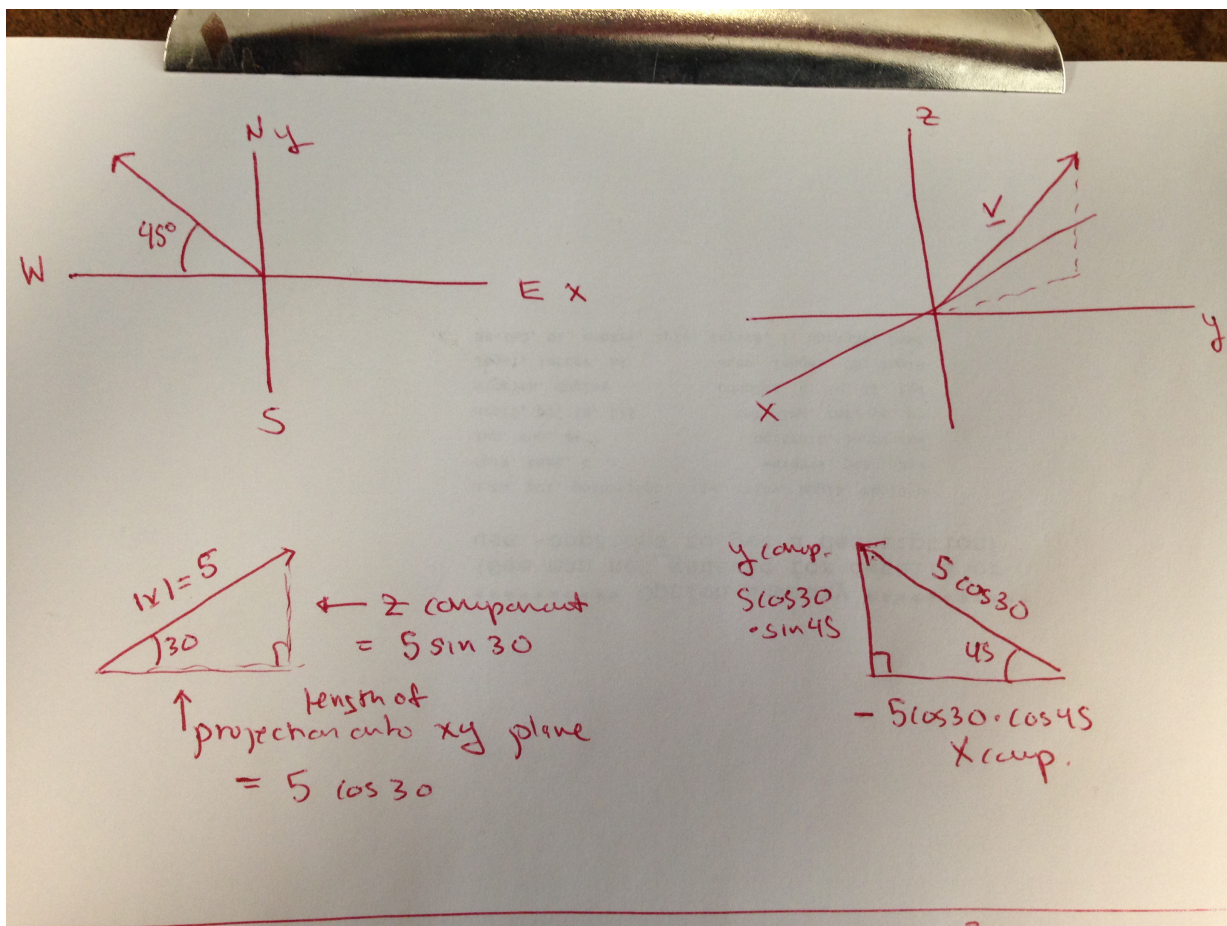 N y
45°
W
E x
S
z
v
y
x
|v| = 5
30
← z component
= 5 sin 30
length of
projection onto xy plane
= 5 cos 30
y comp.
5cos30
·sin45
5 cos30
45
- 5cos30·cos45
x comp.